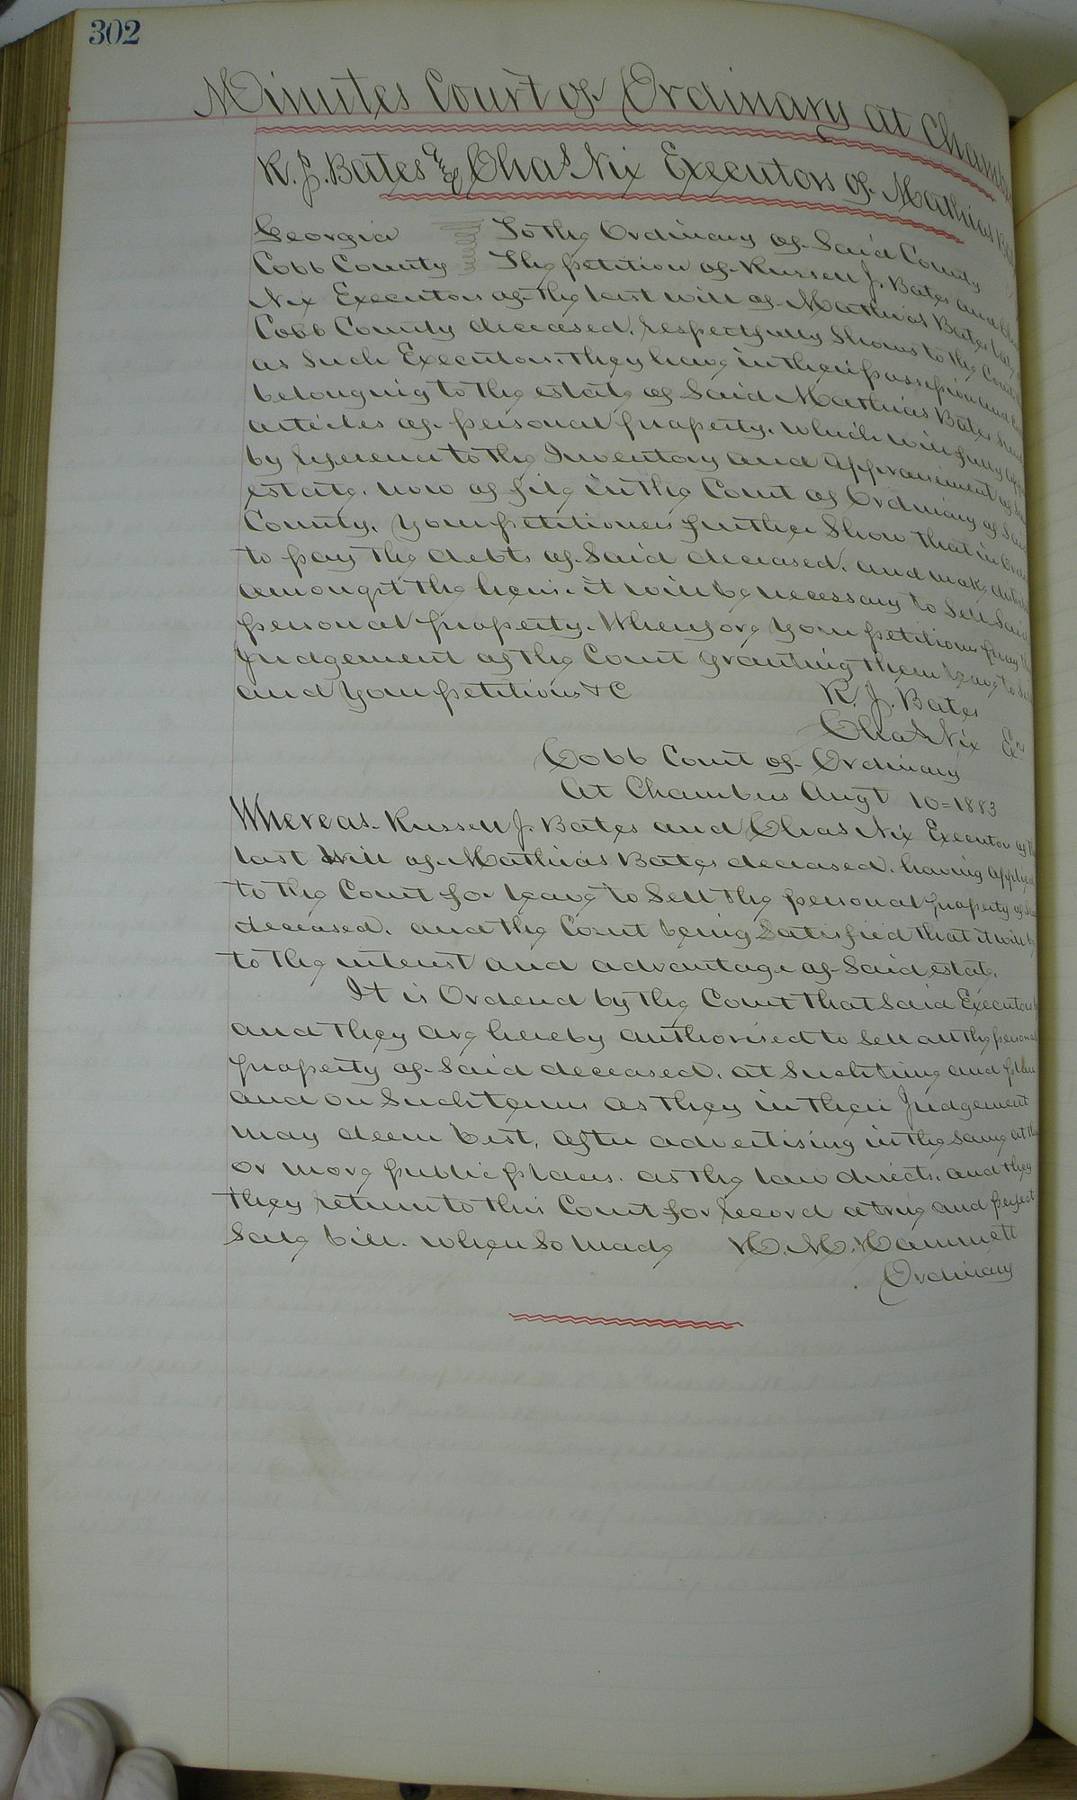 302
Minutes Court of Ordinary at Chamb
R. J. Bates & Chas Nix Executors of Mathias
Georgia To the Ordinary of Said County
Cobb County The petition of Russell J. Bates and
Nix Executors of the last will of Mathias Bates
Cobb County deceased, respectfully Shows to the Court
as Such Executors they have in their possession and
belonging to the estate of Said Mathias Bates
articles of personal property, which will fully
by reference to the Inventory and appraisement of
estate, now of file in the Court of Ordinary of Said
County, your petitioners further Show that in
to pay the debts of Said deceased, and make
amongst the heirs it will be necessary to Sell Said
personal property. Wherefore your petitioners pray
Judgement of the Court granting them leave to
and your petitioners &C R. J. Bates
Chas Nix Exrs
Cobb Court of Ordinary
At Chambers Augt 10=1883
Whereas Russell J. Bates and Chas Nix Executors of
last Will of Mathias Bates deceased, having applied
to the Court for leave to Sell the personal property of
deceased, and the Court being Satisfied that it will be
to the interest and advantage of Said estate,
It is Ordered by the Court that Said Executors
and they are hereby authorised to Sell all the personal
property of Said deceased, at Such time and place
and on Such terms as they in their Judgement
may deem best, after advertising in the same at
or more public places, as the law directs, and they
they return to this Court for record a true and perfect
Sale bill, when So made H. M. Hammett
Ordinary